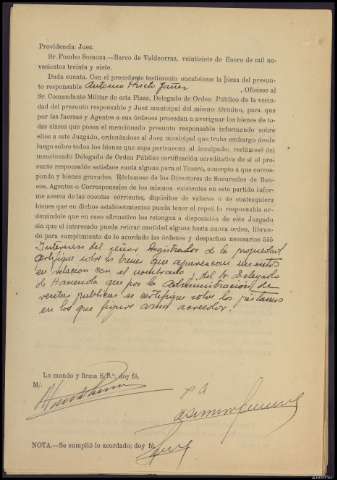 Providencia Juez
Sr. Pombo Somoza.—Barco de Valdeorras, veintinueve de Enero de mil no-
vecientos treinta y siete.
Dada cuenta. Con el precedente testimonio encabécese la pieza del presun-
to responsable Antonio Prieto , Ofíciese al
Sr. Comandente Militar de esta Plaza, Delegado de Orden Público de la vecin-
dad del presunto responsable y Juez municipal del mismo término, para que
por las fuerzas y Agentes a sus órdenes procedan a averiguar los bienes de to-
das clases que posea el mencionado presunto responsable informando sobre
ellos a este Juzgado, ordenándose al Juez municipal que trabe embargo desde
luego sobre todos los bienes que sepa pertenecen al inculpado, remitiendo el
mencionado Delegado de Orden Público certificación acreditativa de si el pre-
sunto responsable satisface cuota alguna para el Tesoro, conceptos a que corres-
ponde y bienes gravados. Recábese de los Directores de Sucursales de Ban-
cos, Agentes o Corresponsales de los mismos existentes en este partido infor-
me acerca de las cuentas corrientes, depósitos de valores o de cualesquiera
bienes que en dichos establecimientos pueda tener el repetido responsable or-
denándole que en caso afirmativo los retengan a disposición de este Juzgado
sin que el interesado pueda retirar cantidad alguna hasta nueva orden, librán-
do para cumplimiento de lo acordado las órdenes y despachos necesarios
Interesese del señor Registrador de la propiedad
certifique sobre los bienes que aparezcan inscritos
en relacion con el nombrado y del Sr Delegado
de Hacienda que por la administracion de
rentas publicas se certifique sobre los
en los que figure como acreedor.
Lo mando y firma S.S.ª; doy fé.
M/
P A
NOTA.—Se cumplió lo acordado; doy fé.